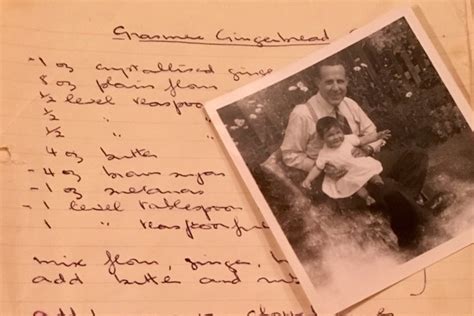 Grasmere Gingerbread
- 1 oz crystallised ginge
8 oz plain flour
½ level teaspoo
½ "
½ "
- 4 oz butter
- 4 oz brown sugar
- 1 oz sultanas
- 1 level tablespoon
1 " teaspoonful
mix flour, ginger,
add butter and